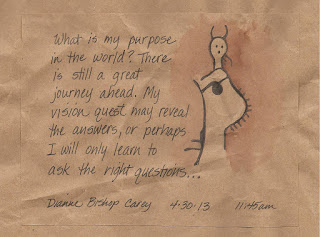 What is my purpose
in the world? There
is still a great
journey ahead. My
vision quest may reveal
the answers, or perhaps
I will only learn to
ask the right questions...
Dianne Bishop Carey 4-30-13 11:45am